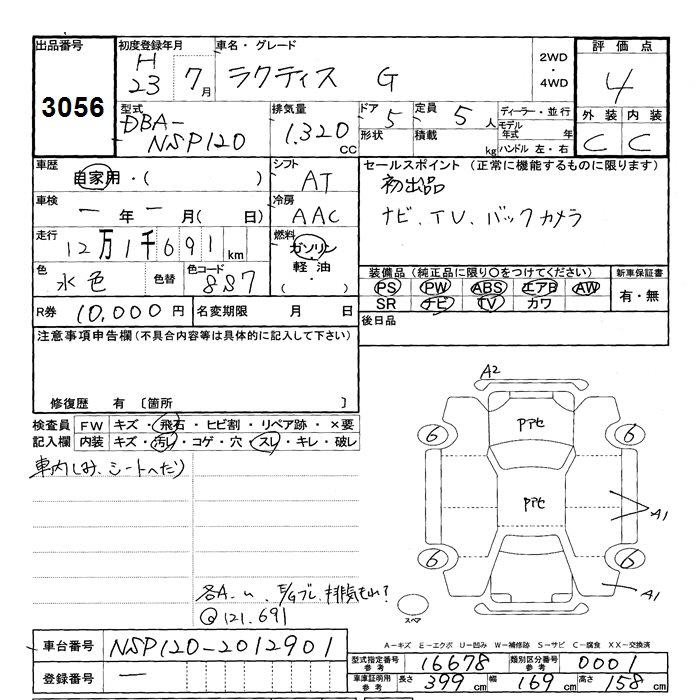 出品番号 初度登録年月 車名・グレード 評価点
3056 H23 7月 ラクティス G 2WD・4WD 4
型式 排気量 ドア 定員 ディーラー・並行 外装 内装
DBA-NSP120 1.320CC 5 5人 モデル年式 年 C C
形状 積載 kg ハンドル 左・右
車歴 シフト セールスポイント (正常に機能するものに限ります)
自家用・( ) AT 初出品
車検 冷房 ナビ、TV、バックカメラ
ー年ー月( 日) AAC
走行 燃料
12万1千691km ガソリン・軽油・( )
色 色替 色コード 装備品 (純正品に限り○をつけてください) 新車保証書
水色 8S7 PS PW ABS エアB AW 有・無
SR ナビ TV カワ
R券 10,000円 名変期限 月 日 後日品
注意事項申告欄(不具合内容等は具体的に記入して下さい)
修復歴 有 〔箇所 〕
検査員 FW キズ・飛石・ヒビ割・リペア跡・×要
記入欄 内装 キズ・汚れ・コゲ・穴・スレ・キレ・破レ
車内しみ、シートへたり
A2
Pアセ
6 6
Pアセ
A1
6 6
A1
スペア
各A
@121.691
A-キズ E-エクボ U-凹み W-補修跡 S-サビ C-腐食 XX-交換済
車台番号 NSP120-2012901
型式指定番号 参考 16678 類別区分番号 参考 0001
登録番号 ー
車庫証明用 参考 長さ 399cm 幅 169cm 高さ 158cm